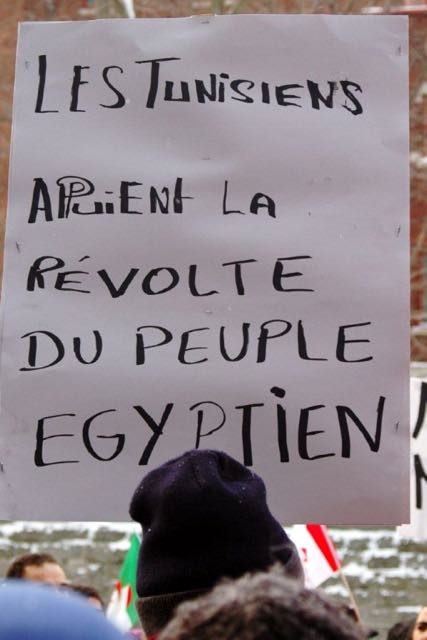 LES TUNISIENS
APPUIENT LA
RÉVOLTE
DU PEUPLE
EGYPTIEN